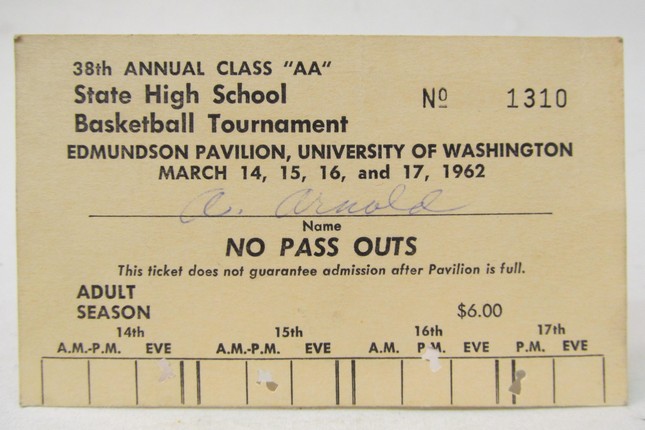 38th ANNUAL CLASS "AA"
State High School
Nº 1310
Basketball Tournament
EDMUNDSON PAVILION, UNIVERSITY OF WASHINGTON
MARCH 14, 15, 16, and 17, 1962
A. Arnold
Name
NO PASS OUTS
This ticket does not guarantee admission after Pavilion is full.
ADULT
SEASON $6.00
14th 15th 16th 17th
A.M.-P.M. EVE A.M.-P.M. EVE A.M. P.M. EVE P.M. EVE